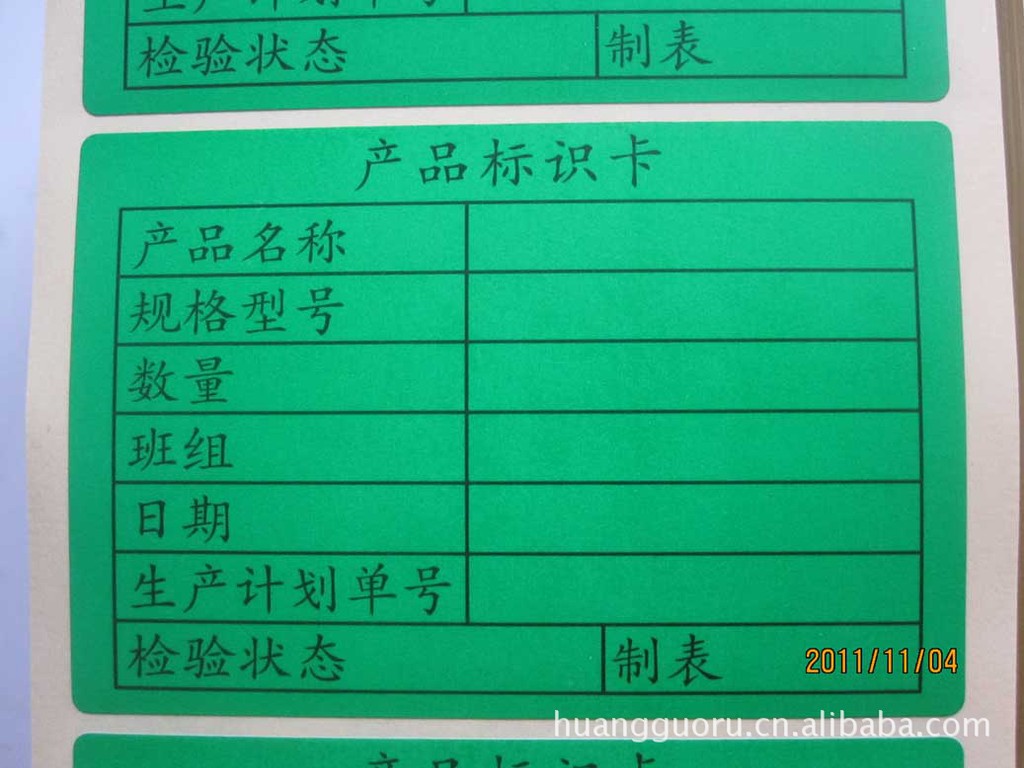 生产计划单号
检验状态 制表
产品标识卡
产品名称
规格型号
数量
班组
日期
生产计划单号
检验状态 制表
2011/11/04
huangguoru.cn.alibaba.com
产品标识卡